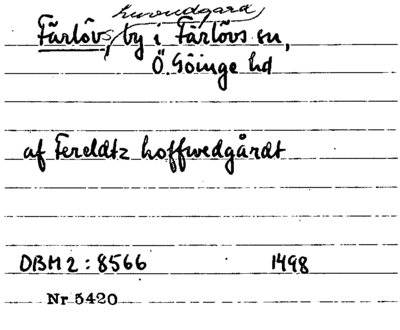 huvudgård
Färlövs, by i Färlövs sn,
Ö. Göinge hd
af Fereldtz hoffwedgårdt
DBM 2:8566 1498
Nr 5420